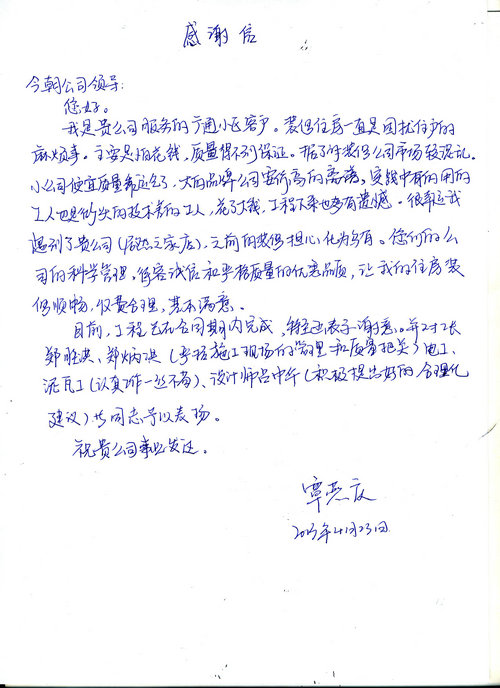 感谢信
今朝公司领导:
您好。
我是贵公司服务的广通小区客户。装修住房一直是困扰住户的
麻烦事。主要是怕花钱,质量得不到保证。据了解装修公司市场较混乱。
小公司便宜质量靠运气,大的品牌公司要价高的离谱,实际中有的用的
工人也是低次的技术差的工人,花了钱,工程下来也多有遗憾。很幸运我
想到了贵公司(居然之家店),之前的装修担心化为乌有。您们的公
司的科学管理,待客诚信和严格质量的优秀品质,让我的住房装
修顺畅,收费合理,甚不满意。
目前,工程已在合同期内完成,特在此表示谢意。并对工长
郑胜洪、郑炳洪(严格施工现场的管理和质量把关)电工、
泥瓦工(认真工作一丝不苟)、设计师吕中华(积极提出好的合理化
建议)等同志予以表扬。
祝贵公司事业发达。
覃燕庆
2013年4月23日